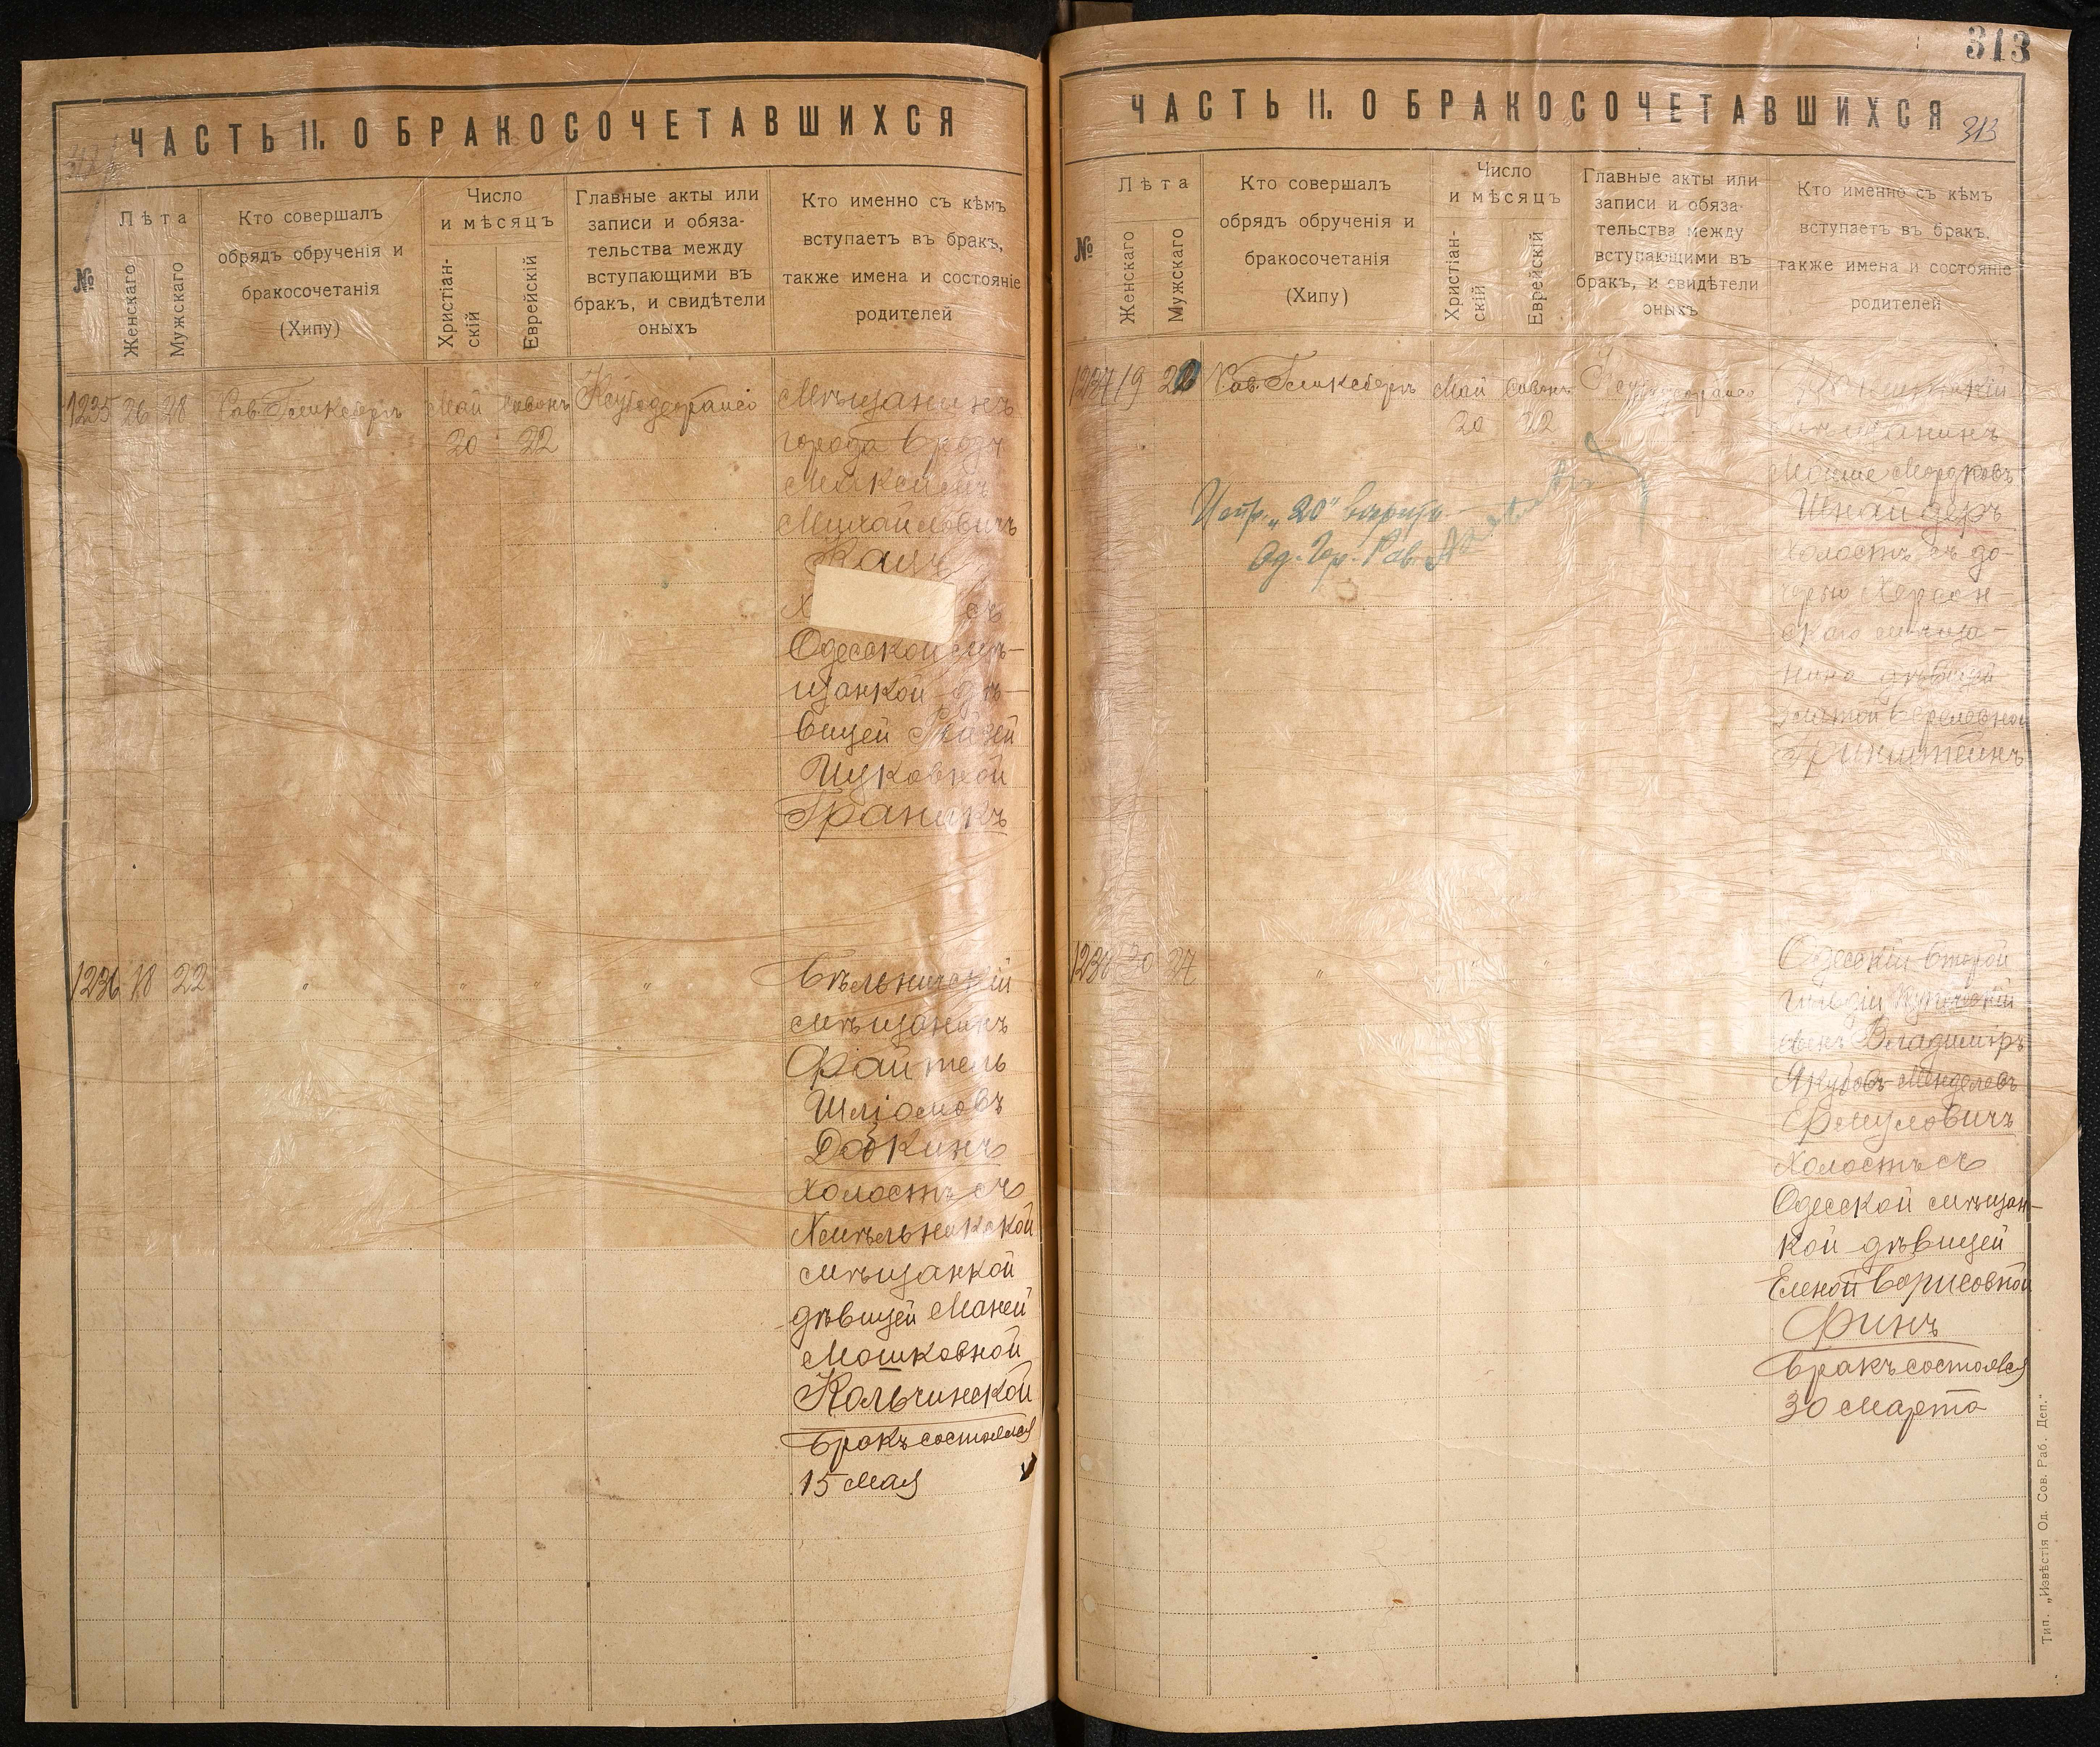 ЧАСТЬ II. О БРАКОСОЧЕТАВШИХСЯ
№
Лѣта
Женскаго
Мужскаго
Кто совершалъ
обрядъ обрученія и
бракосочетанія
(Хипу)
Число
и мѣсяцъ
Христіан-
скій
Еврейскій
Главные акты или
записи и обяза-
тельства между
вступающими въ
бракъ, и свидѣтели
оныхъ
Кто именно съ кѣмъ
вступаетъ въ бракъ,
также имена и состояніе
родителей
1235 26 28
Май
20 22
Мѣщанинъ
города Бродъ
Михайловичъ
Кацъ
Х съ
Одесской мѣ-
щанкой дѣ-
вицей Рейзей
Ицковной
Граникъ
1236 18 22 " " " "
Бѣльничскій
мѣщанинъ
Файтель
Шліомовъ
Добкинъ
холостъ съ
Хмѣльникской
мѣщанкой
дѣвицей Маней
Мошковной
Кольчинской
Бракъ состоялся
15 Мая
313
ЧАСТЬ II. О БРАКОСОЧЕТАВШИХСЯ
313
№
Лѣта
Женскаго
Мужскаго
Кто совершалъ
обрядъ обрученія и
бракосочетанія
(Хипу)
Число
и мѣсяцъ
Христіан-
скій
Еврейскій
Главные акты или
записи и обяза-
тельства между
вступающими въ
бракъ, и свидѣтели
оныхъ
Кто именно съ кѣмъ
вступаетъ въ бракъ,
также имена и состояніе
родителей
1237 19 20
Май
20 22
мѣщанинъ
Мойше Мордковъ
Шнайдеръ
холостъ съ до-
черью Херсон-
скаго мѣща-
нина дѣвицей
Златой Береловной
Гринштейнъ
Испр. „20" вѣрить
Од. Гор. Рав.
1238 30 27 " " "
Одесскій второй
гильдіи купеческій
сынъ Владиміръ
Якубовъ-Менделевъ
Фмуловичъ
холостъ съ
Одесской мѣщан-
кой дѣвицей
Еленой Борисовной
Финъ
Бракъ состоялся
30 Марта
Тип. „Извѣстія Од. Сов. Раб. Деп."